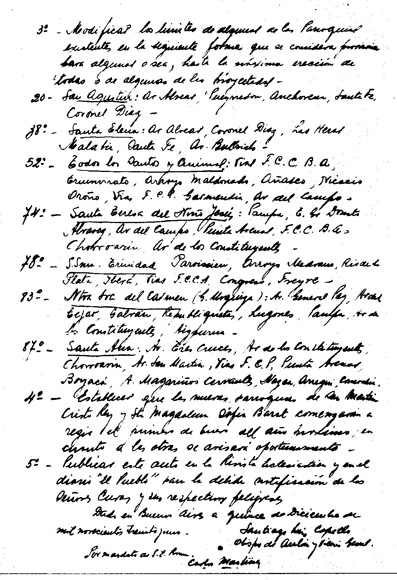 3º - Modificar los limites de algunas de las Parroquias
existentes, en la siguiente forma que se considera provisoria
para algunas o sea, hasta la próxima erección de
todas o de algunas de las proyectadas -
20 - San Agustín: Av Alvear, Pueyrredon, Anchorena, Santa Fe,
Coronel Diaz -
38º - Santa Elena: Av Alvear, Coronel Diaz, Las Heras
Malabia, Santa Fe, Av. Bullrich -
52º - Todos los Santos y Animas: Vias F.C.C.B.A,
Triunvirato, Arroyo Maldonado, Añasco, Nicasio
Oroño, Vias F.C.P. Garmendia, Av del Campo -
74º - Santa Teresa del Niño Jesús: Pampa, E. Gº Donato
Alvarez, Av del Campo, Punta Arenas, F.C.C.B.A,
Chorroarin Av de los Constituyentes -
78º - SSma. Trinidad Paroissien, Arroyo Medrano, Rio de la
Plata, Iberá, Vias F.C.C.A, Congreso, Freyre -
83º - Ntra Sra del Carmen (V. Urquiza): Av. General Paz, Avda
Tejar, Galvan, Republiquetas, Lugones, Pampa, Av de
los Constituyentes,
87º - Santa Ana: Av. Tres Cruces, Av de los Constituyentes,
Chorroarin, Av. San Martin, Vias F.C.P, Punta Arenas,
Boyacá, A. Magariños Cervantes,
4º - Establecer que las nuevas parroquias de San Martin
Cristo Rey y Sta Magdalena Sofia Barat comenzarán a
regir el primero de enero del año proximo; en
cuanto a las otras se avisará oportunamente -
5º - Publicar este auto en la Revista Eclesiastica y en el
diario "El Pueblo" para la debida notificación de los
Señores Curas y sus respectivos feligreses
Dado en Buenos Aires a quince de Diciembre de
mil novecientos treinta y uno.
Santiago Luis Copello
Obispo de Aulon y Vicario Genral.
Por mandato de S.S. Rvma.
Carlos Martinez